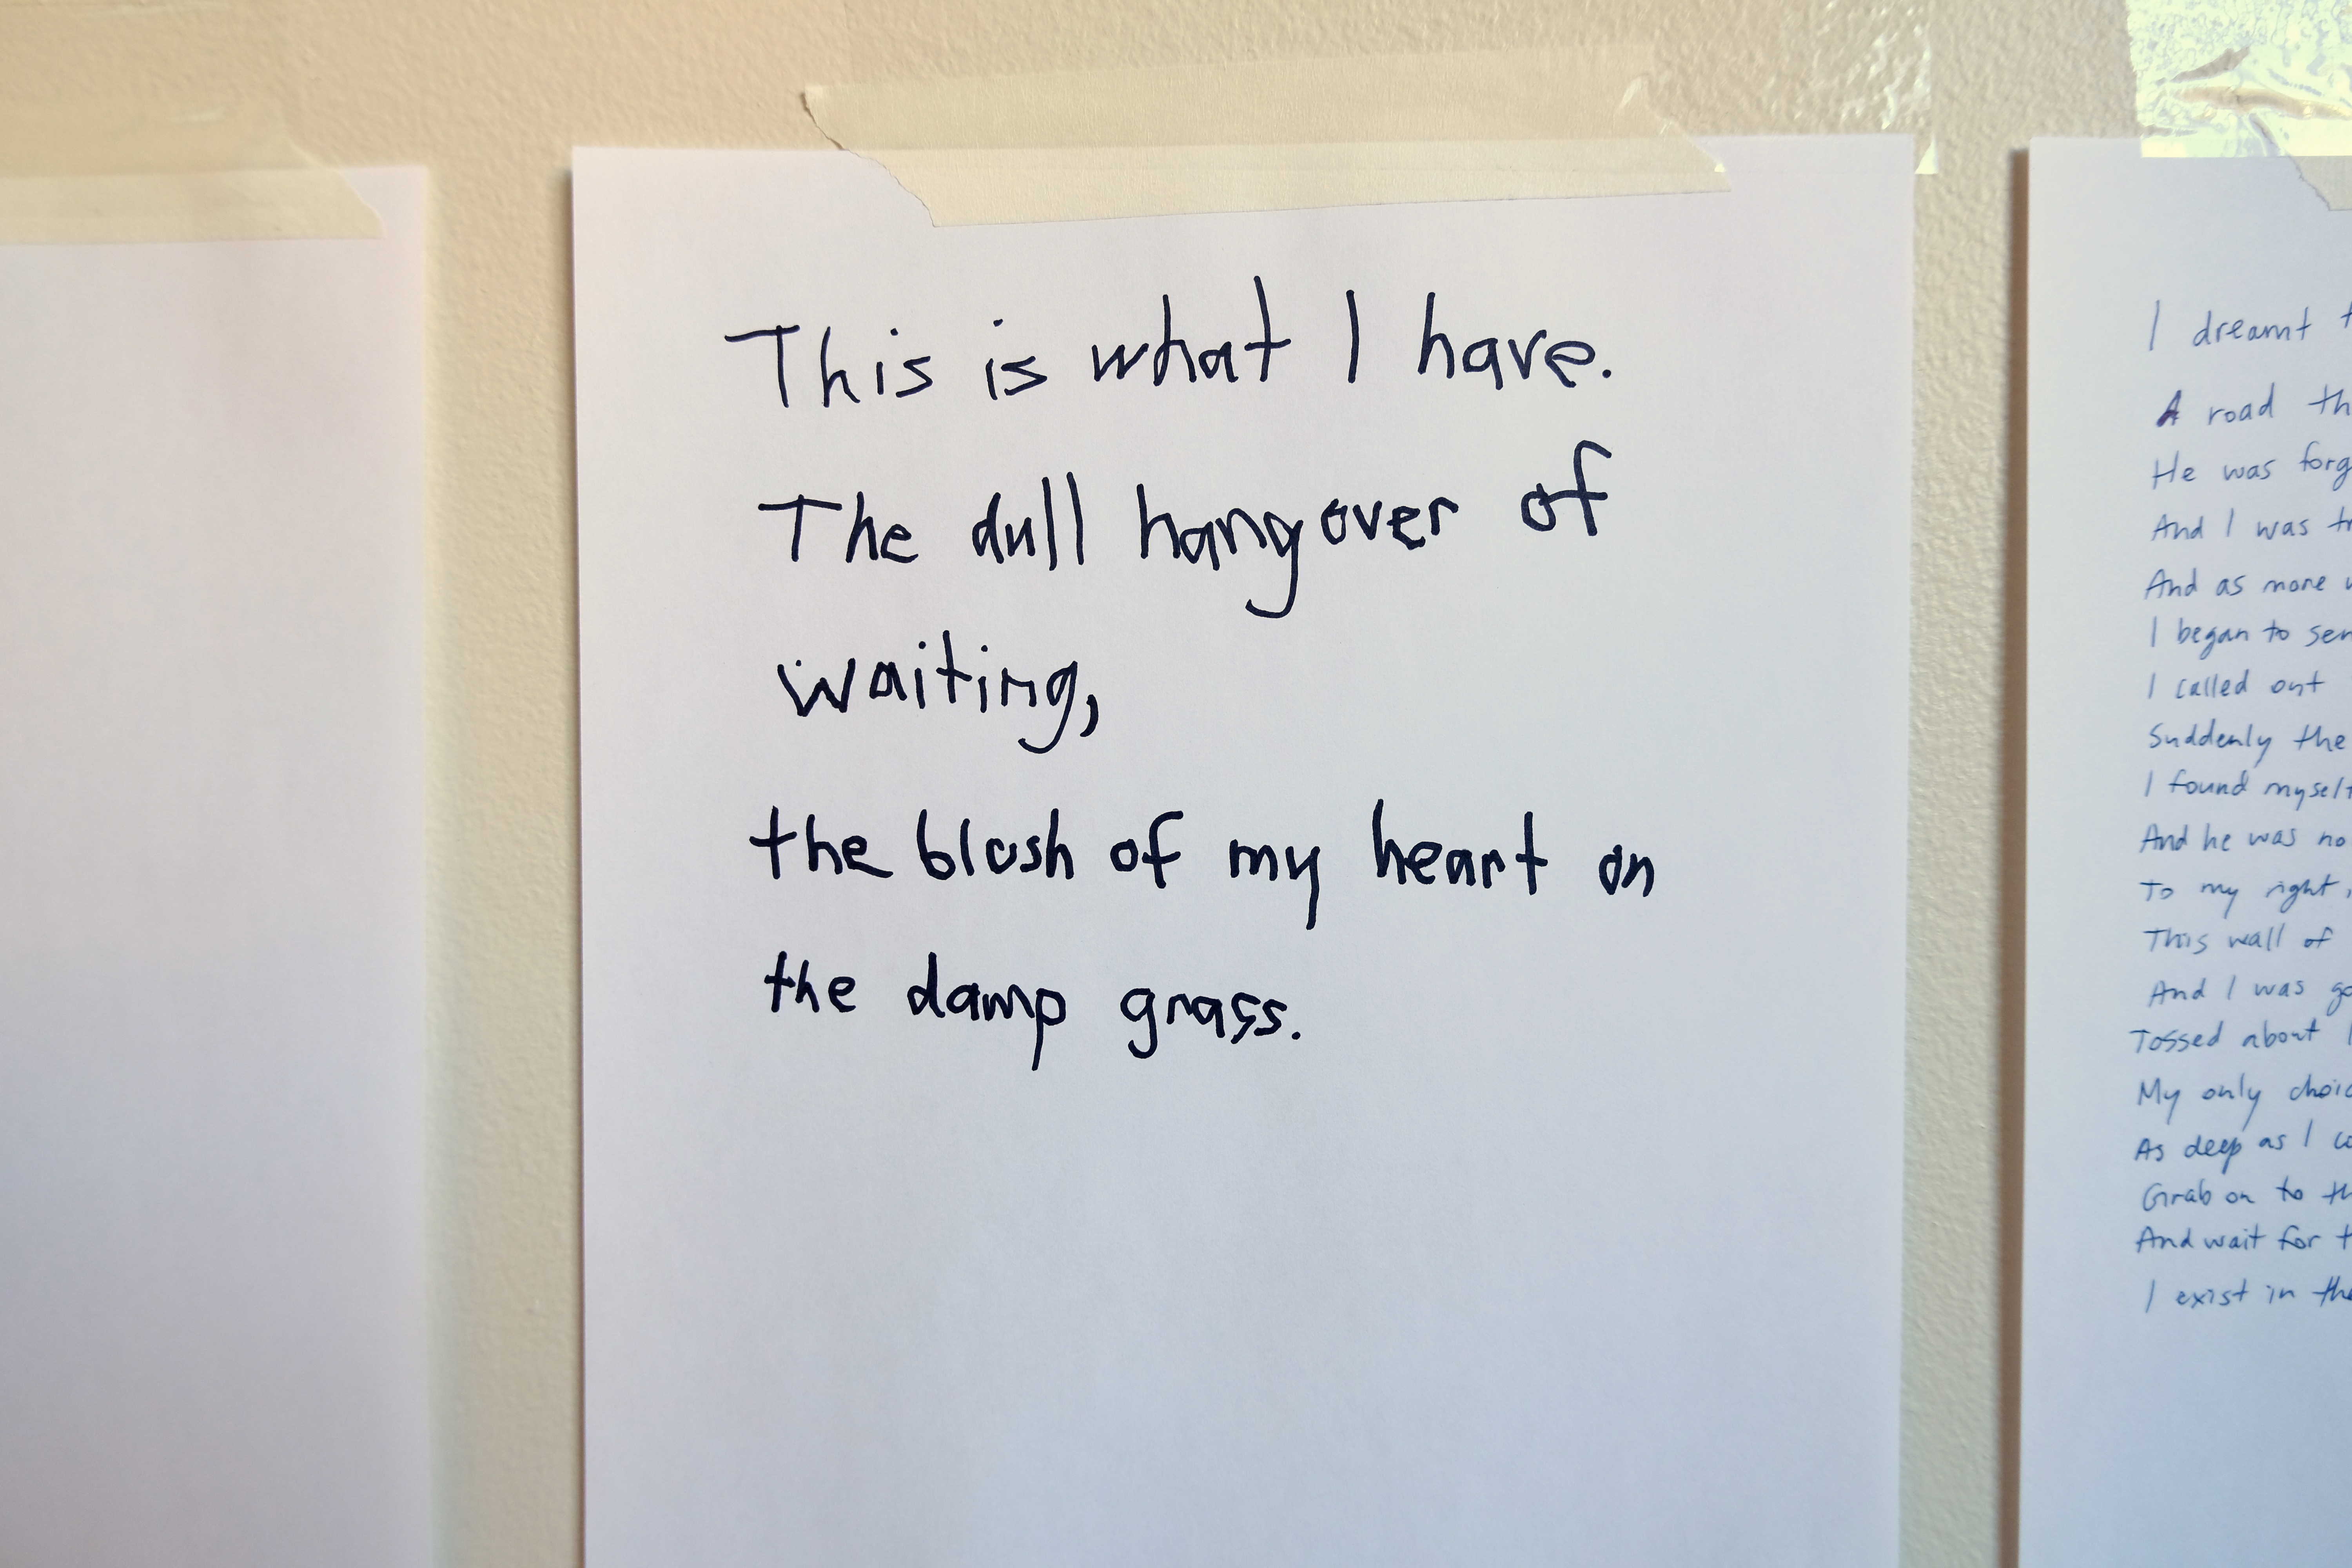 This is what I have.
The dull hangover of
waiting,
the blush of my heart on
the damp grass.
I dreamt
A road
He was
And I was
And as more
I began to
I called out
Suddenly the
I found myself
And he was no
To my right,
This wall of
And I was
Tossed about
My only
As deep as I
Grab on to
And wait for
I exist in the